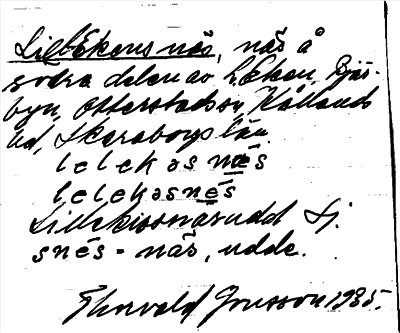 Lillekens näs, näs å
södra delen av L. Eken, Djäs-
byn, Otterstads sn, Kållands
hd, Skaraborgs län.
lelekəsnés
lelekəsnés
Lillekissnäsudd Sj.
snés - näs, udde.
Thorvald Jonsson 1935.